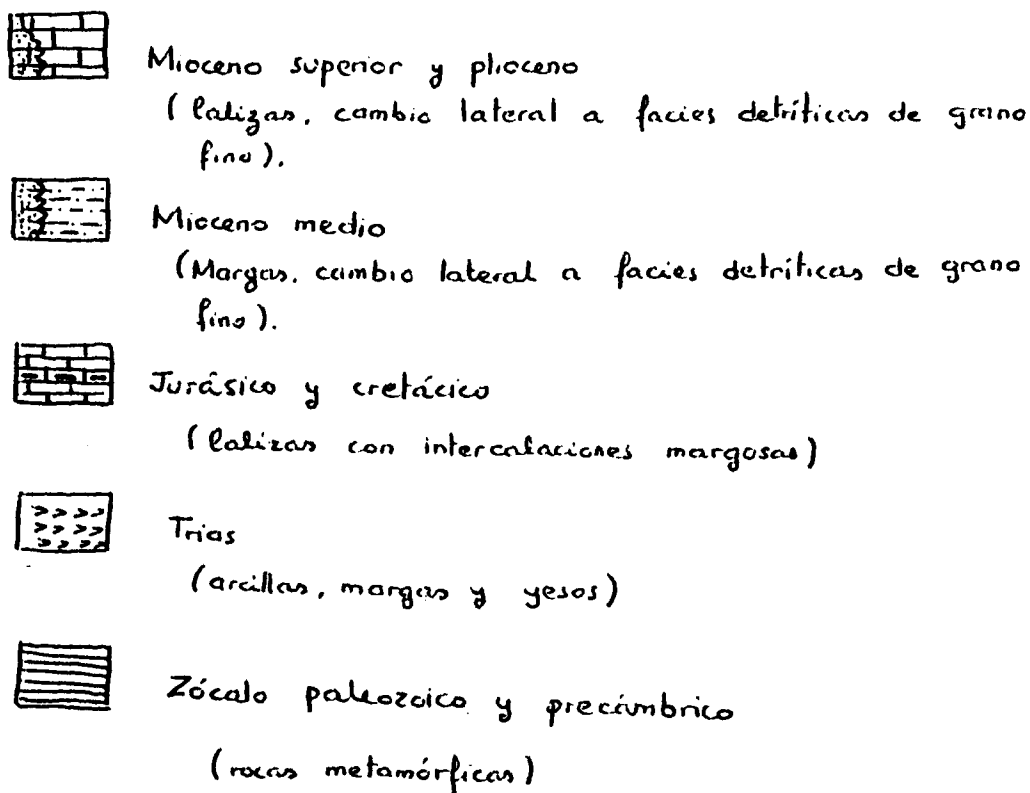 Mioceno superior y plioceno
(Calizas, cambio lateral a facies detríticas de grano
fino).
Mioceno medio
(Margas, cambio lateral a facies detríticas de grano
fino).
Jurásico y cretácico
(Calizas con intercalaciones margosas)
Trias
(arcillas, margas y yesos)
Zócalo paleozoico y precámbrico
(rocas metamórficas)